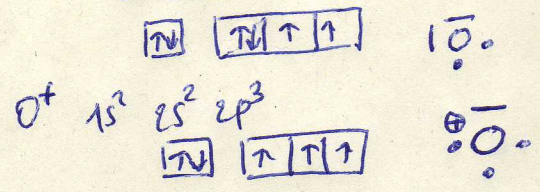 ↑↓ ↑↓ ↑ ↑ O
O⁺ 1s² 2s² 2p³ ⊕ O
↑↓ ↑ ↑ ↑